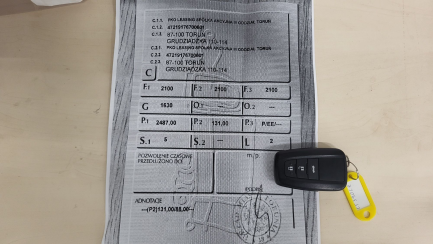 C.1.1. PKO LEASING SPÓŁKA AKCYJNA III ODDZIAŁ TORUŃ
C.1.2. 47215176700001
C.1.3. 87-100 TORUŃ
GRUDZIĄDZKA 110-114
C.2.1. PKO LEASING SPÓŁKA AKCYJNA III ODDZIAŁ TORUŃ
C.2.2. 47215176700001
C.2.3. 87-100 TORUŃ
GRUDZIĄDZKA 110-114
C
F.1 2100 F.2 2100 F.3 2100
G 1630 O.1 --- O.2 ---
P.1 2487,00 P.2 131,00 P.3 P/EE/---
S.1 5 S.2 --- L 2
POZWOLENIE CZASOWE
PRZEDŁUŻONO DO:
m.p.
ADNOTACJE
---(P2)131,00/88,00/---